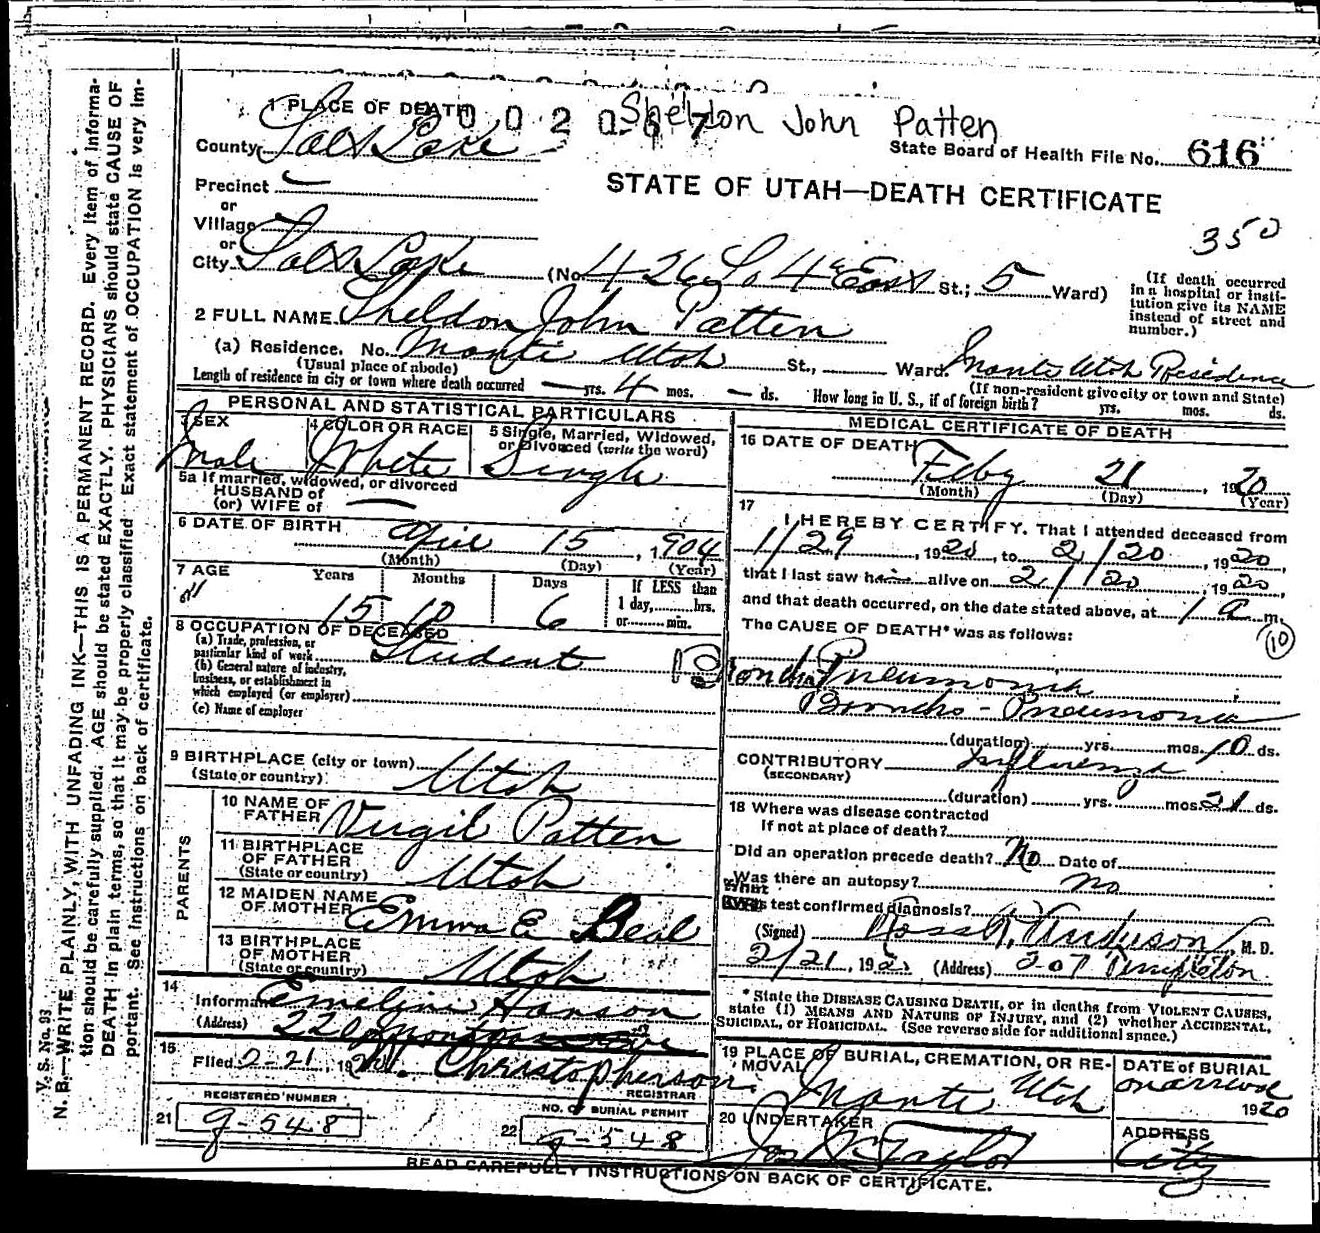 Sheldon John Patten
1 PLACE OF DEATH
County Salt Lake
State Board of Health File No. 616
Precinct
STATE OF UTAH—DEATH CERTIFICATE
or
Village
350
or
City Salt Lake (No. 426 So 4 East St.; 5 Ward)
(If death occurred in a hospital or institution give its NAME instead of street and number.)
2 FULL NAME Sheldon John Patten
(a) Residence. No. Manti Utah St., Ward. Manti Utah Residence
(Usual place of abode) (If non-resident give city or town and State)
Length of residence in city or town where death occurred — yrs. 4 mos. — ds. How long in U. S., if of foreign birth? yrs. mos. ds.
PERSONAL AND STATISTICAL PARTICULARS
3 SEX 4 COLOR OR RACE 5 Single, Married, Widowed, or Divorced (write the word)
Male White Single
5a If married, widowed, or divorced
HUSBAND of
(or) WIFE of —
6 DATE OF BIRTH April 15, 1904
(Month) (Day) (Year)
7 AGE Years Months Days If LESS than
1 day, hrs.
or min.
15 10 6
8 OCCUPATION OF DECEASED
(a) Trade, profession, or
particular kind of work Student
(b) General nature of industry,
business, or establishment in
which employed (or employer)
(c) Name of employer
9 BIRTHPLACE (city or town)
(State or country) Utah
PARENTS
10 NAME OF FATHER Virgil Patten
11 BIRTHPLACE OF FATHER
(State or country) Utah
12 MAIDEN NAME OF MOTHER Emma E Beal
13 BIRTHPLACE OF MOTHER
(State or country) Utah
14
Informant Emeline Hanson
(Address) 220
15
Filed 2-21, 1920 Christopherson
REGISTRAR
REGISTERED NUMBER
21 g-548
NO. OF BURIAL PERMIT
22 g-548
MEDICAL CERTIFICATE OF DEATH
16 DATE OF DEATH
Feby 21, 1920
(Month) (Day) (Year)
17
I HEREBY CERTIFY, That I attended deceased from
1/29, 1920, to 2/20, 1920,
that I last saw him alive on 2/20, 1920,
and that death occurred, on the date stated above, at 1 a m.
The CAUSE OF DEATH* was as follows:
10
Broncho Pneumonia
Broncho-Pneumonia
(duration) yrs. mos. 10 ds.
CONTRIBUTORY Influenza
(SECONDARY)
(duration) yrs. mos. 21 ds.
18 Where was disease contracted
If not at place of death?
Did an operation precede death? No Date of
Was there an autopsy? no
What test confirmed diagnosis?
(Signed) Ross Anderson, M. D.
2/21, 192 (Address) 207 Templeton
* State the DISEASE CAUSING DEATH, or in deaths from VIOLENT CAUSES,
state (1) MEANS AND NATURE OF INJURY, and (2) whether ACCIDENTAL,
SUICIDAL, OR HOMICIDAL. (See reverse side for additional space.)
19 PLACE OF BURIAL, CREMATION, OR RE-
MOVAL
Manti Utah
DATE of BURIAL
on arrival
1920
20 UNDERTAKER
Jos Taylor
ADDRESS
City
READ CAREFULLY INSTRUCTIONS ON BACK OF CERTIFICATE.
V. S. No. 98
N. B.—WRITE PLAINLY, WITH UNFADING INK—THIS IS A PERMANENT RECORD. Every item of informa-
tion should be carefully supplied. AGE should be stated EXACTLY. PHYSICIANS should state CAUSE OF
DEATH in plain terms, so that it may be properly classified. Exact statement of OCCUPATION is very im-
portant. See instructions on back of certificate.